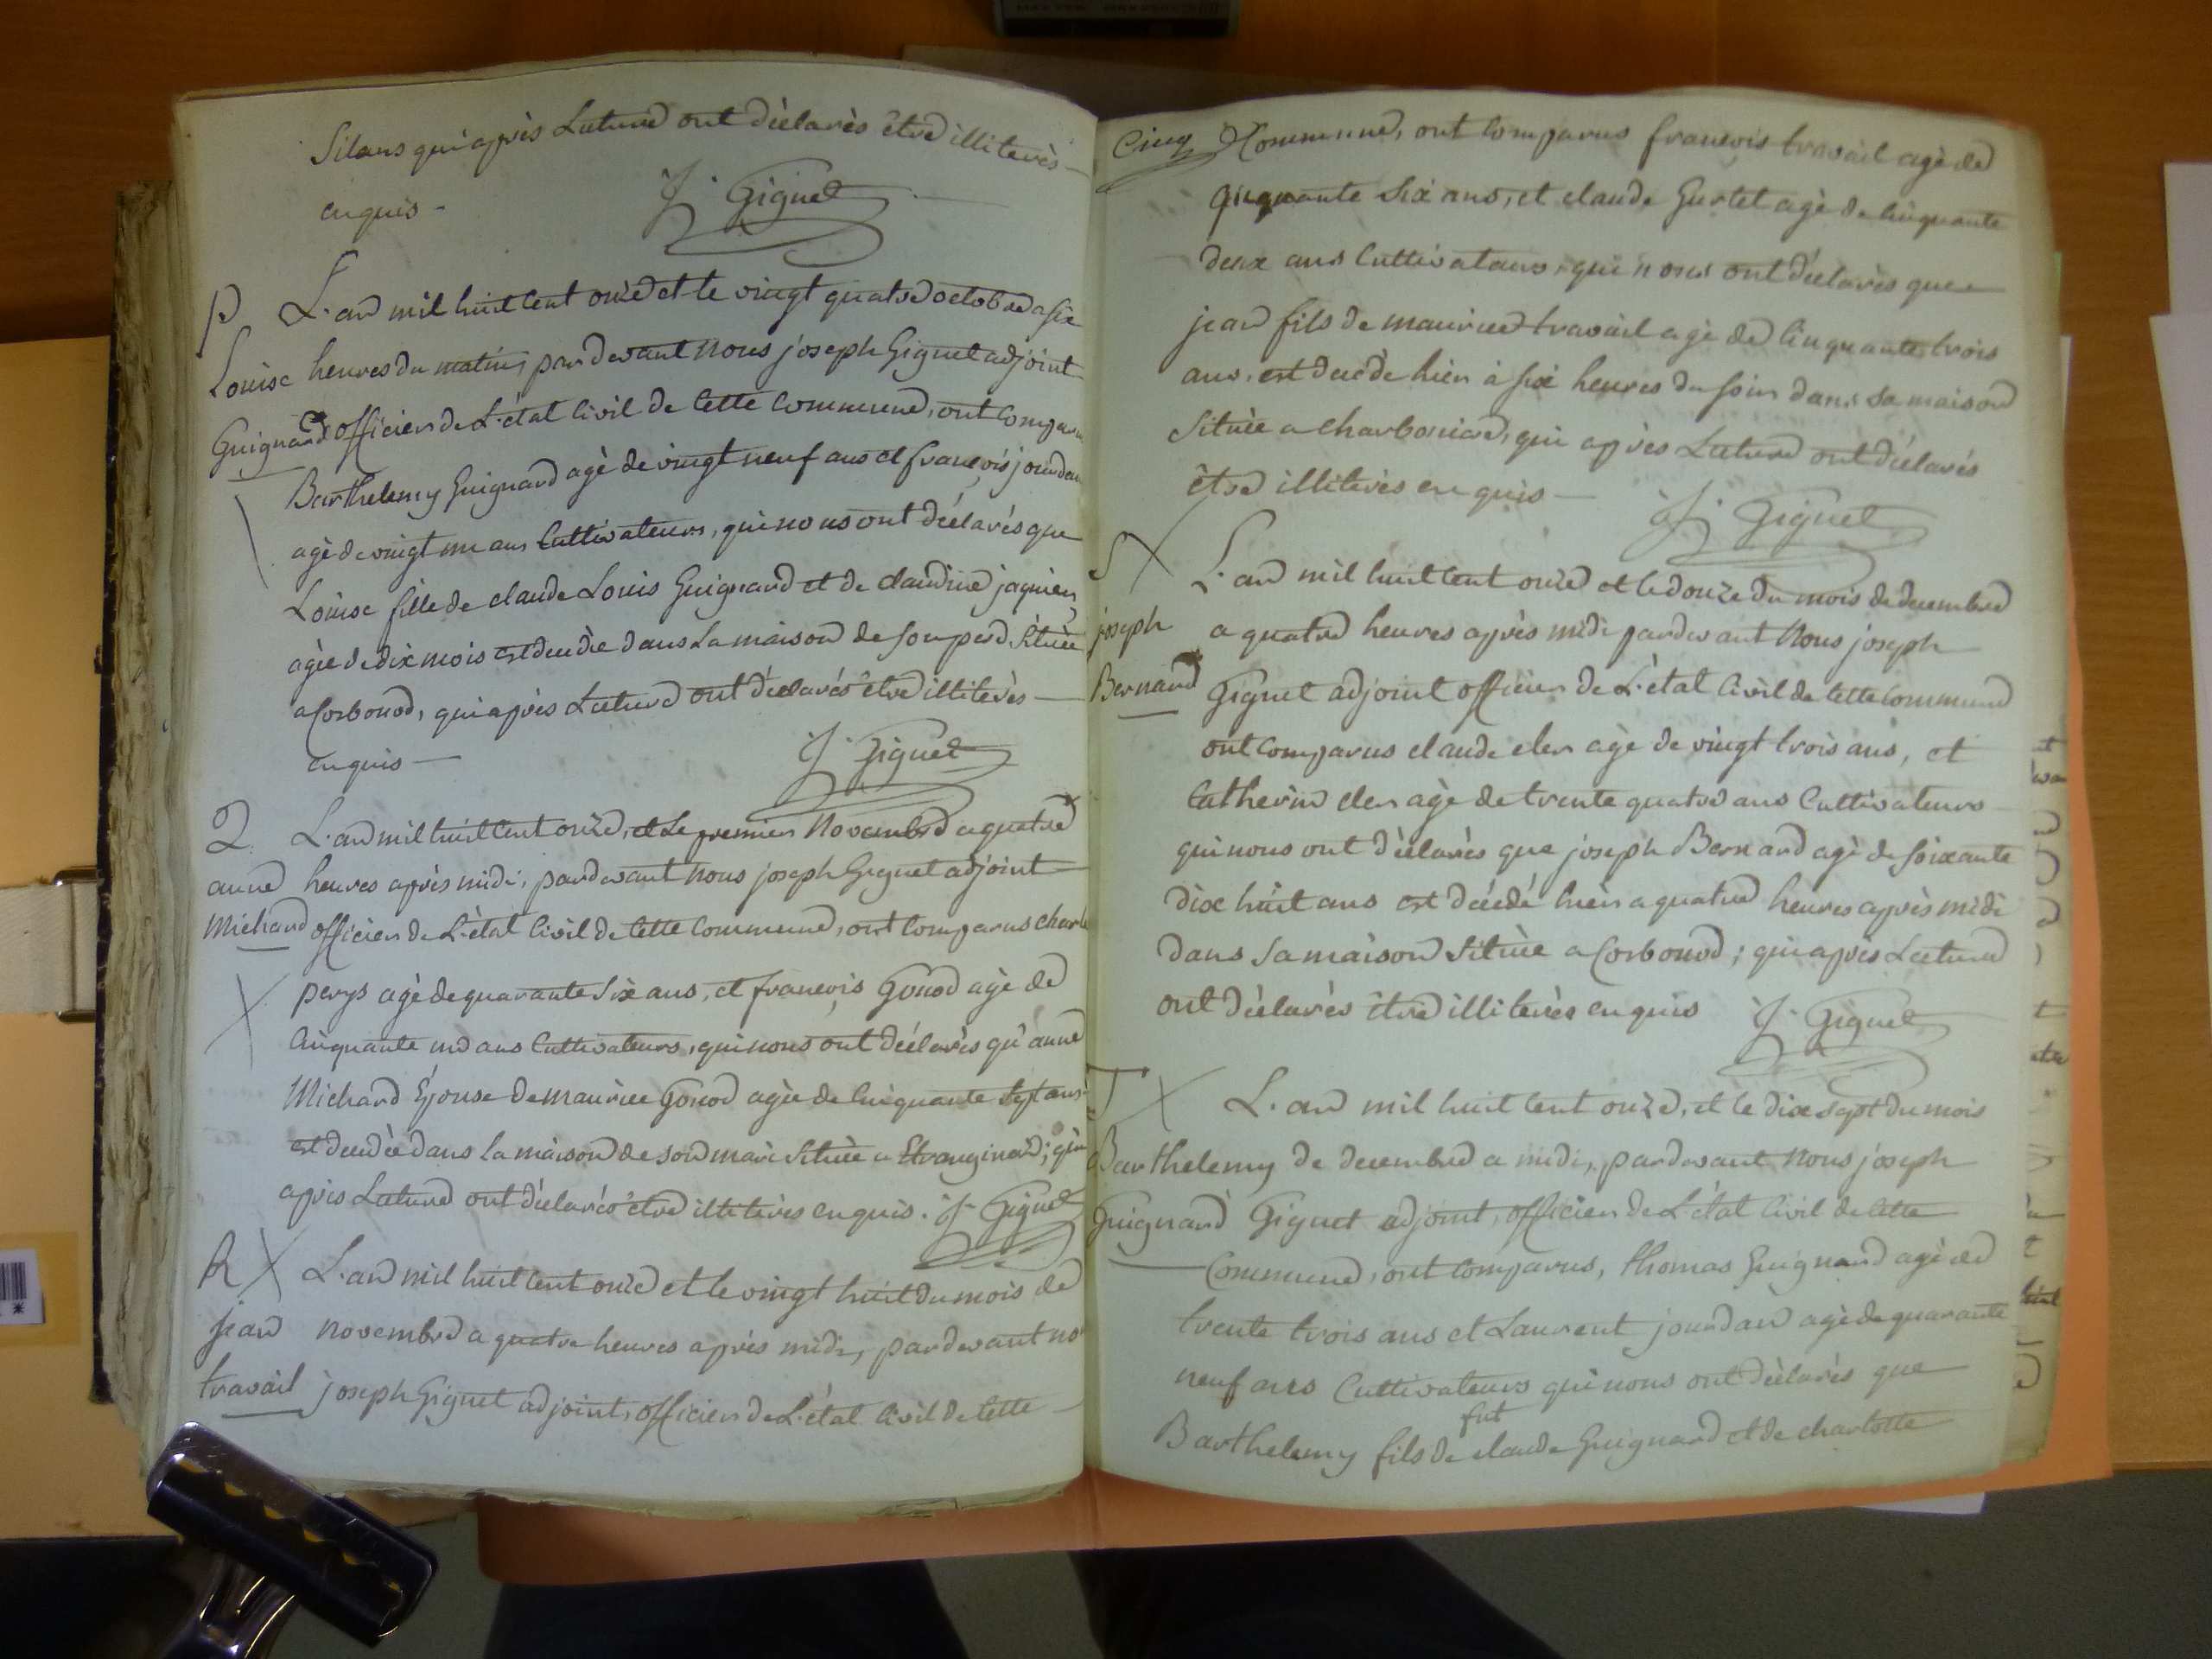 Silans qui après Lecture ont déclarés être illiterès
enquis -
J. Giguet
P. L'an mil huit cent onze et le vingt quatre octobre a six
Louise heures du matin, pardevant Nous joseph Giguet adjoint
Guignard officier de L'état Civil de Cette Commune, ont Comparu
Barthelemy Guignard agè de vingt neuf ans et françois jourdan
agè de vingt un ans Cultivateurs, qui nous ont déclarés que
Louise fille de claude Louis Guignard et de claudine jaquier
agèe de dix mois est decedèe dans La maison de son perd Située
a Corbonod, qui après Lecture ont déclarés être illiterès
enquis —
J. Giguet
Q. L'an mil huit Cent onze, et Le premier Novembre a quatre
anne heures après midi, pardevant Nous joseph Giguet adjoint
Michard officier de L'état Civil de Cette Commune, ont Comparus charle
perys agè de quarante Six ans, et françois Gonod agè de
Cinquante un ans Cultivateurs, qui nous ont déclarès qu'anne
Michard Épouse de maurice Gonod agèe de Cinquante Sept ans
est decedèe dans La maison de son mari Située a Etranginard; qui
après Lecture ont déclarés être illiterès enquis. J. Giguet
R X L'an mil huit Cent onze et le vingt huit du mois de
jean novembre a quatre heures après midi, pardevant no
travail joseph Giguet adjoint, officier de L'état Civil de Cette
Cinq Commune, ont Comparus françois travail agè de
Cinquante Six ans, et claude Gurtet agè de Cinquante
deux ans Cultivateurs, qui nous ont déclarès que
jean fils de maurice travail agè de Cinquante trois
ans, est decèdè hier à six heures du soir dans sa maison
Située a charboniere, qui après Lecture ont déclarés
être illiterès enquis —
J. Giguet
S X L'an mil huit Cent onze et le douze du mois de decembre
joseph a quatre heures après midi pardevant Nous joseph
Bernard Giguet adjoint officier de L'état Civil de Cette Commune
ont Comparus claude cler agè de vingt trois ans, et
Catherin cler agè de trente quatre ans Cultivateurs
qui nous ont déclarès que joseph Bernard agè de soixante
dix huit ans est décédé hier a quatre heures après midi
dans sa maison Située a Corbonod; qui après Lecture
ont déclarés être illiterès enquis J. Giguet
T X L'an mil huit Cent onze, et le dix sept du mois
Barthelemy de decembre a midi, pardevant Nous joseph
Guignard Giguet adjoint, officier de L'état Civil de Cette
Commune, ont Comparus, thomas Guignard agè de
trente trois ans et Laurent jourdan agè de quarante
neuf ans Cultivateurs qui nous ont déclarés que
fut
Barthelemy fils de claude Guignard et de charlotte